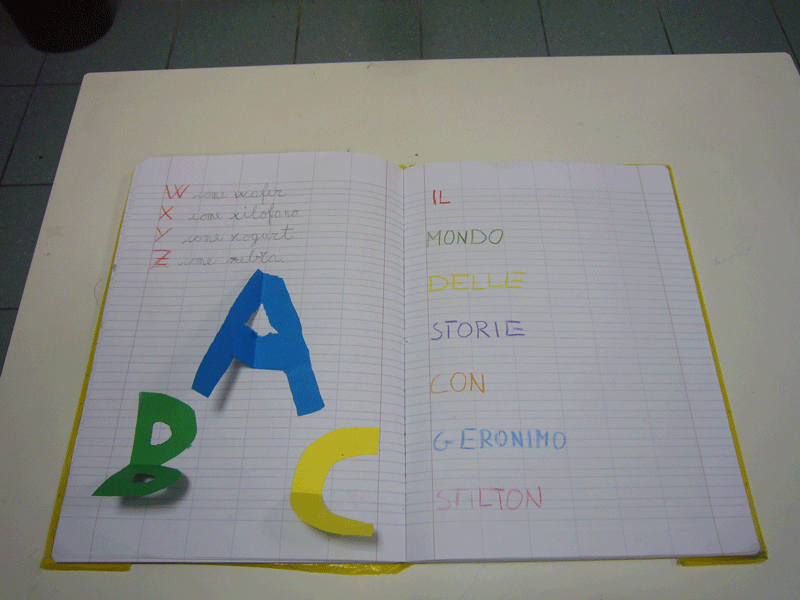 W come wafer
X come xilofano
Y come yogurt
Z come zebra.
A
B
C
IL
MONDO
DELLE
STORIE
CON
GERONIMO
STILTON